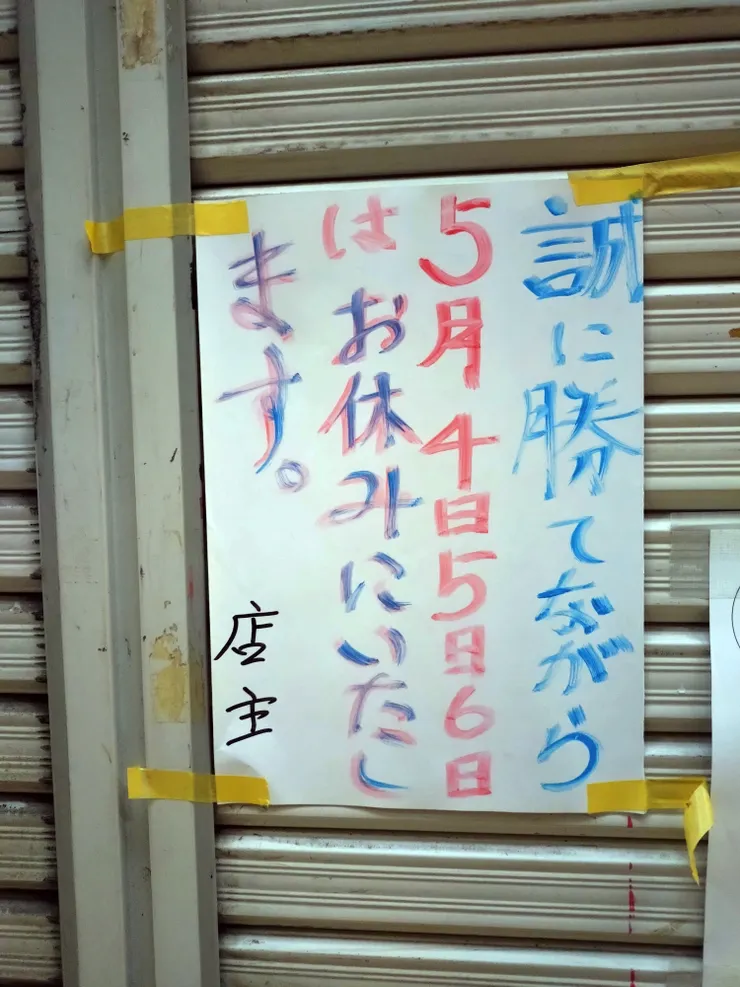 誠に勝てながら
5月4日5日6日
はお休みにいたし
ます。
店主